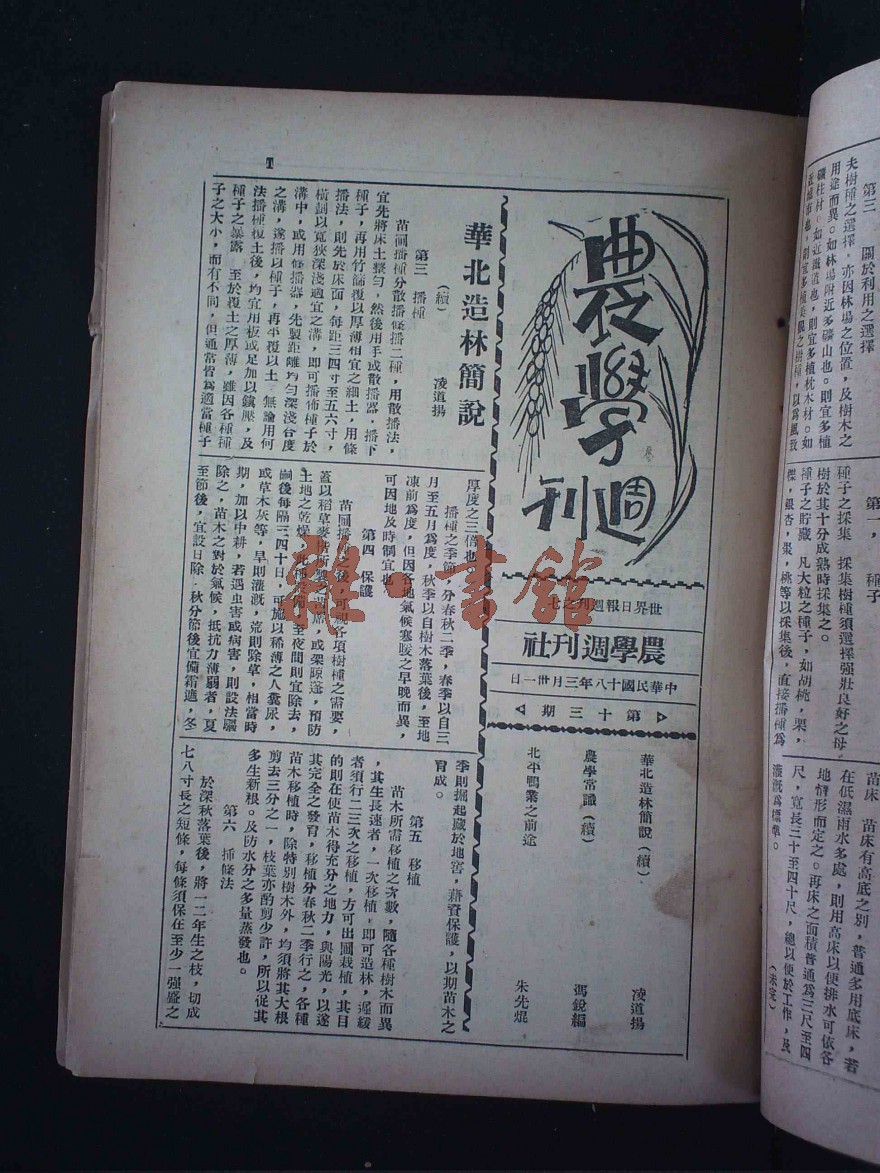 夫樹種之選擇，亦因林場之位置，及樹木之
用途而異。如林場附近多礦山也。則宜多植
礦柱材。如近鐵道也，則宜多植枕木材。如
近城市也，則宜多植美觀之樹種，以為風致
第三　關於利用之選擇
第一，
種子之採集　採集樹種須選擇强壯良好之母
樹於其十分成熟時採集之。
種子之貯藏　凡大粒之種子，如胡桃，栗，
櫟，銀杏，棗，桃等以採集後，直接播種為
苗床有高底之別，普通多用底床，若
在低濕雨水多處，則用高床以便排水可依各
地情形而定之。再床之面積普通為三尺至四
尺，寬長三十至四十尺，總以便於工作，及
灌溉為標準。
（未完）
農學
週刊
世界日報週刊之七
農學週刊社
中華民國十八年三月卅一日
第十三期
華北造林簡說（續）　凌道揚
農學常識（續）　馮銳編
北平鴨業之前途　朱先焜
華北造林簡說
（續）　凌道揚
第三　播種
苗圃播種分散播條播二種，用散播法，
宜先將床土整勻，然後用手或散播器，播下
種子，再用竹篩覆以厚薄相宜之細土，用條
播法，則先於床面，每距三四寸至五六寸，
橫劃以寬狹深淺適宜之溝，即可播佈種子於
溝中，或用條播器，先製距離均勻深淺合度
之溝，遂播以種子，再平覆以土　無論用何
法播種覆土後，均宜用板或足加以鎮壓，及
種子之暴露　至於覆土之厚薄，雖因各種種
子之大小，而有不同，但通常皆為適當種子
厚度之三倍也
播種之季節，分春秋二季，春季以自三
月至五月為度，秋季以自樹木落葉後，至地
凍前為度，但因各地氣候寒暖之早晚而異，
可因地及時制宜也
第四　保護
苗圃播種之後，可視各項樹種之需要，
蓋以稻草麥楷所製之
土地之乾燥，
或架蔭蓬，預防
至夜間則宜除去，
嗣後每隔三四十日，可施以稀薄之人糞尿，
或草木灰等，旱則灌溉，荒則除草，相當時
期，加以中耕，若遇虫害或病害，則設法驅
除之，苗木之對於氣候，抵抗力薄弱者，夏
至節後，宜設日除　秋分節後宜備霜遮，冬
季則掘起藏於地窖，藉資保護，以期苗木之
育成。
第五　移植
苗木所需移植之次數，隨各種樹木而異
，其生長速者，一次移植，即可造林，遲緩
者須行二三次之移植，方可出圃栽植，其目
的則在使苗木得充分之地力，與陽光，以遂
其完全之發育，移植分春秋二季行之，各種
苗木移植時，除特別樹木外，均須將其大根
剪去三分之一，枝葉亦酌剪少許，所以促其
多生新根。及防水分之多量蒸發也。
第六　插條法
於深秋落葉後，將一二年生之枝，切成
七八寸長之短條，每條須保在至少一强盛之
雜·書館